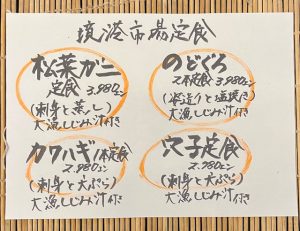 境港市場定食
松葉ガニ
定食 3,980円
(刺身と蒸し)
大漁しじみ汁付き
のどぐろ
定食 3,980円
(姿造りと塩焼き)
大漁しじみ汁付き
カワハギ1本定食
2,980円
(刺身と天ぷら)
大漁しじみ汁付き
穴子定食
2,980円
(刺身と天ぷら)
大漁しじみ汁付き